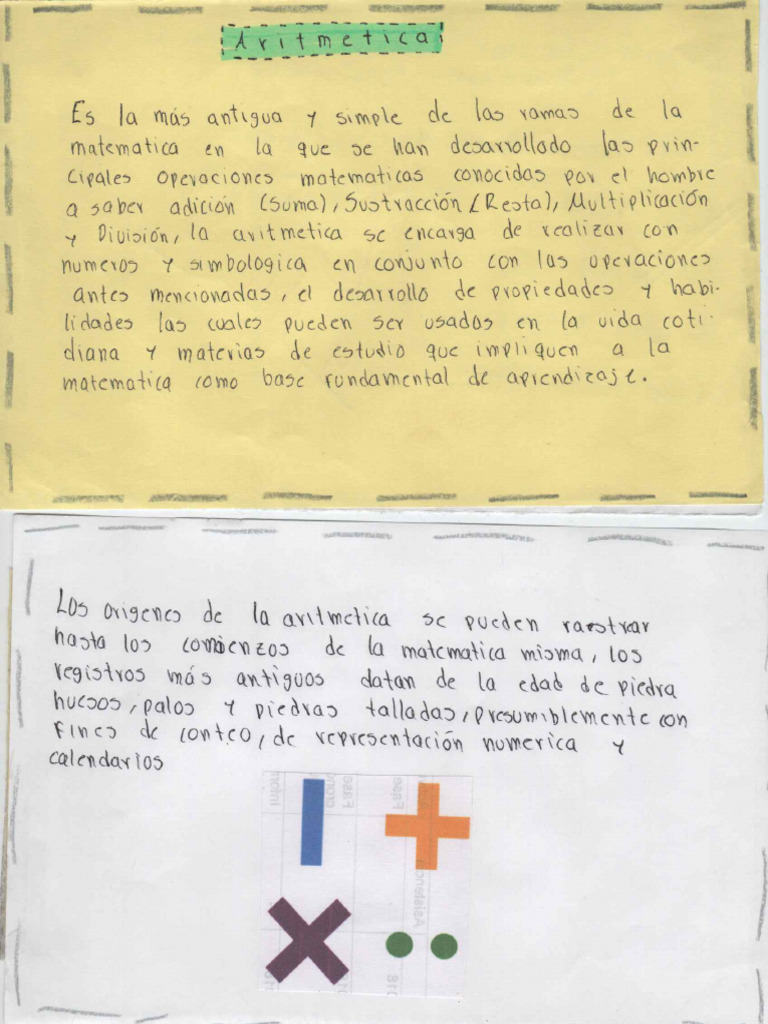 Aritmetica
Es la más antigua y simple de las ramas de la
matematica en la que se han desarrollado las prin-
cipales operaciones matematicas conocidas por el hombre
a saber adición (Suma), Sustracción (Resta), Multiplicación
y División, la aritmetica se encarga de realizar con
numeros y simbologica en conjunto con las operaciones
antes mencionadas, el desarrollo de propiedades y habi-
lidades las cuales pueden ser usados en la vida coti-
diana y materias de estudio que impliquen a la
matematica como base fundamental de aprendizaje.
Los origenes de la aritmetica se pueden raestrear
hasta los comienzos de la matematica misma, los
registros más antiguos datan de la edad de piedra
huesos, palos y piedras talladas, presumiblemente con
fines de conteo, de representación numerica y
calendarios
Fase
Fase
Asistenc